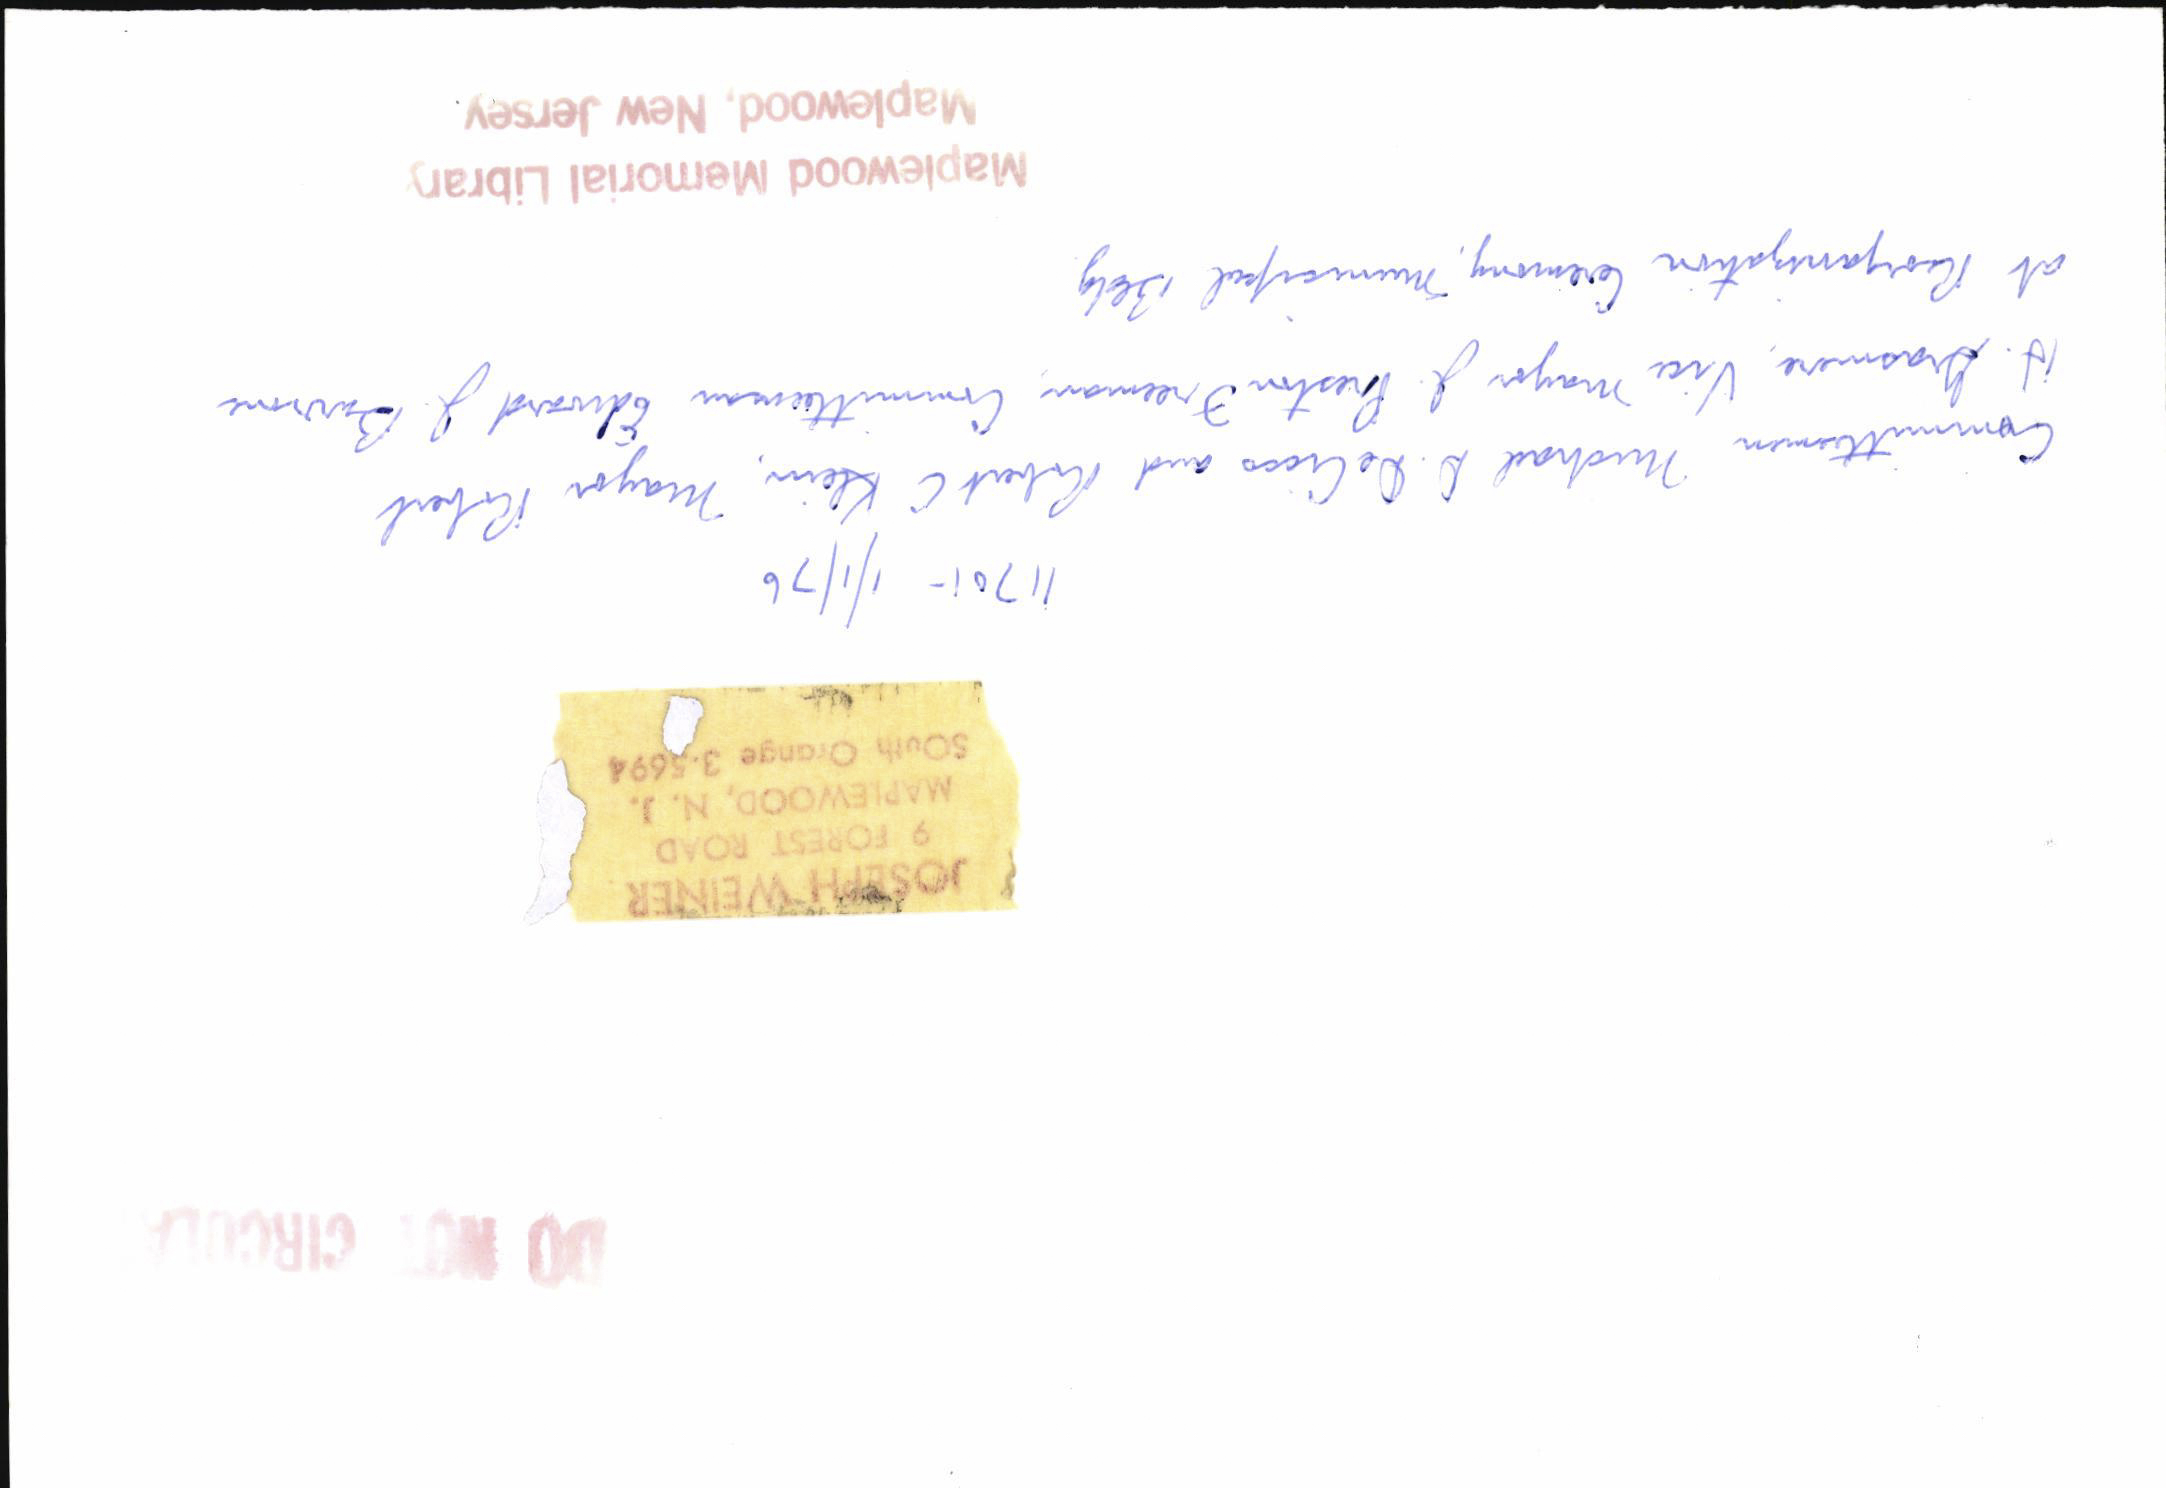 DO NOT CIRCULA
JOSEPH WEINER
9 FOREST ROAD
MAPLEWOOD, N. J.
SOuth Orange 3-5694
11701- 1/1/76
Committemen Michael D. DeCicco and Robert C Klein, Mayor Robert
H. Grasmere, Vice Mayor J. Preston Freeman, Committeeman Edward J. Burrone
at Reorganization Ceremony, Municipal Bldg
Maplewood Memorial Library
Maplewood, New Jersey